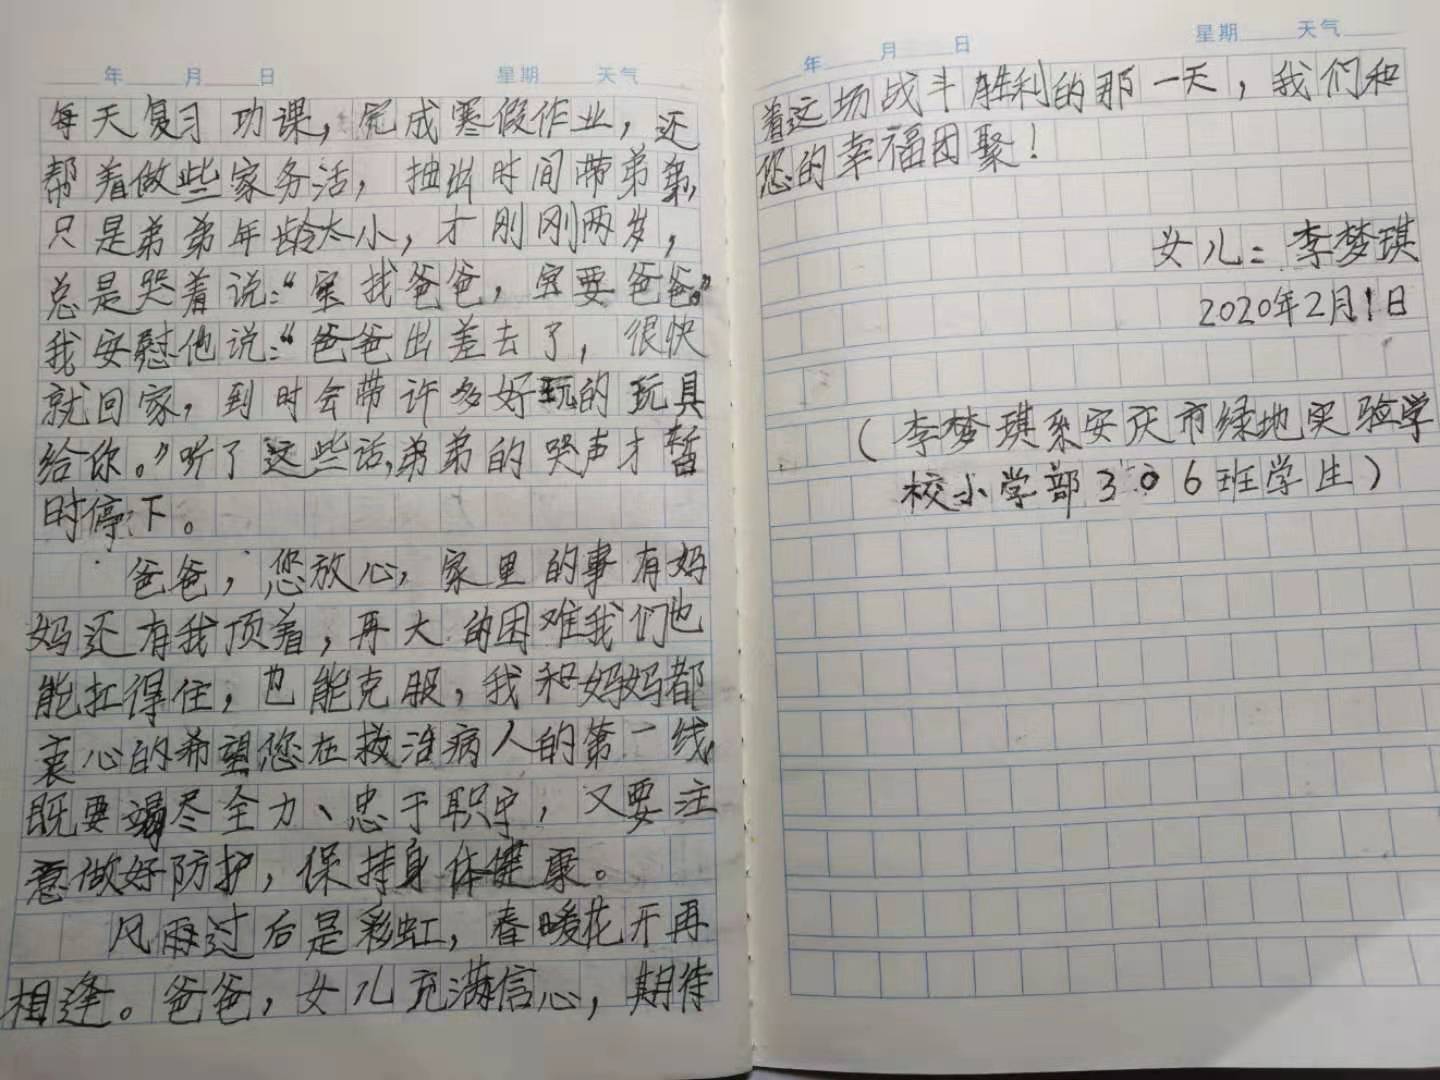 年 月 日 星期 天气
每天复习功课，完成寒假作业，还
帮着做些家务活，抽出时间带弟弟，
只是弟弟年龄太小，才刚刚两岁，
总是哭着说：“宝找爸爸，宝要爸爸。”
我安慰他说：“爸爸出差去了，很快
就回家，到时会带许多好玩的玩具
给你。”听了这些话，弟弟的哭声才暂
时停下。
爸爸，您放心，家里的事有妈
妈还有我顶着，再大的困难我们也
能扛得住，也能克服，我和妈妈都
衷心的希望您在救治病人的第一线，
既要竭尽全力、忠于职守，又要注
意做好防护，保持身体健康。
风雨过后是彩虹，春暖花开再
相逢。爸爸，女儿充满信心，期待
年 月 日 星期 天气
着这场战斗胜利的那一天，我们和
您的幸福团聚！
女儿：李梦琪
2020年2月1日
（李梦琪系安庆市绿地实验学
校小学部306班学生）